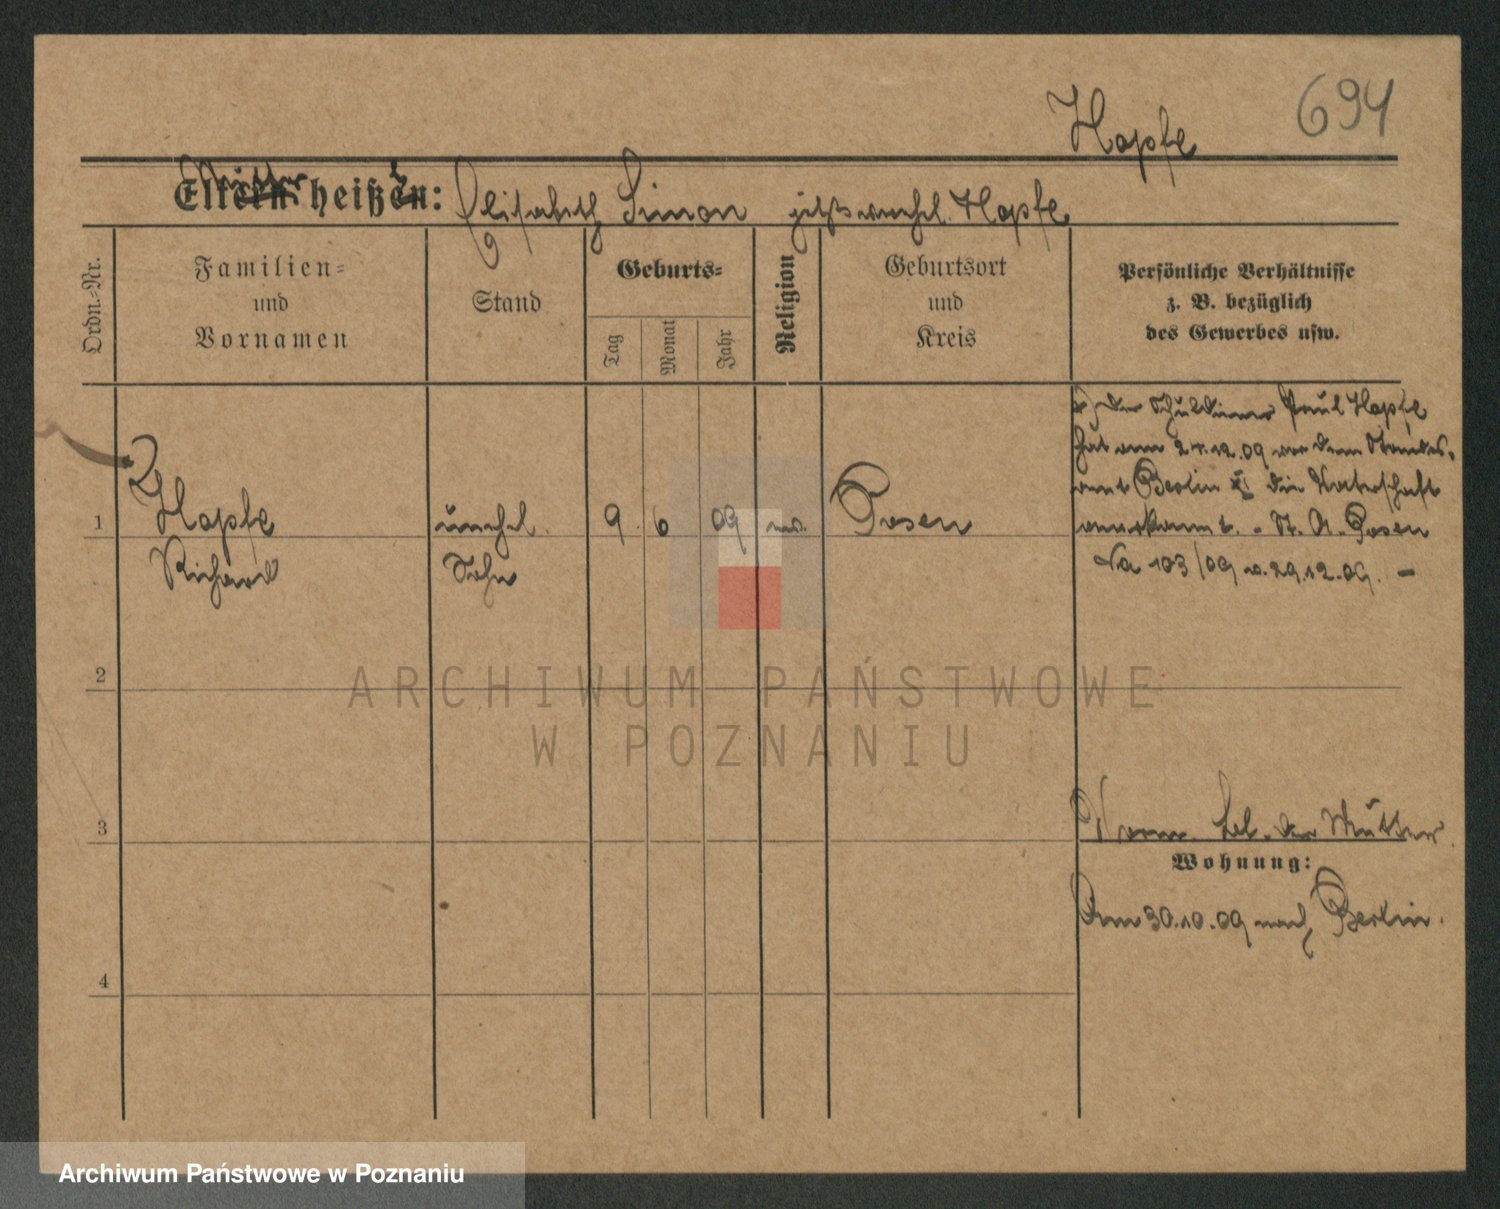 Hopfe 694
Mutter heißt: Elisabeth Simon jetzt verehel. Hopfe
Ordn.-Nr.
Familien-
und
Vornamen
Stand
Geburts-
Tag
Monat
Jahr
Religion
Geburtsort
und
Kreis
Persönliche Verhältnisse
z. B. bezüglich
des Gewerbes usw.
1
Hopfe
Richard
unehel.
Sohn
9 6 09
Posen
der Schuldiener Paul Hopfe
hat am 27.12.09 vor dem Standes-
amt Berlin die Vaterschaft
anerkannt. - St. A. Posen
103/09 v. 29.12.09. -
2
3
der Mutter
Wohnung:
Am 30.10.09 nach Berlin.
4
ARCHIWUM PAŃSTWOWE
W POZNANIU
Archiwum Państwowe w Poznaniu